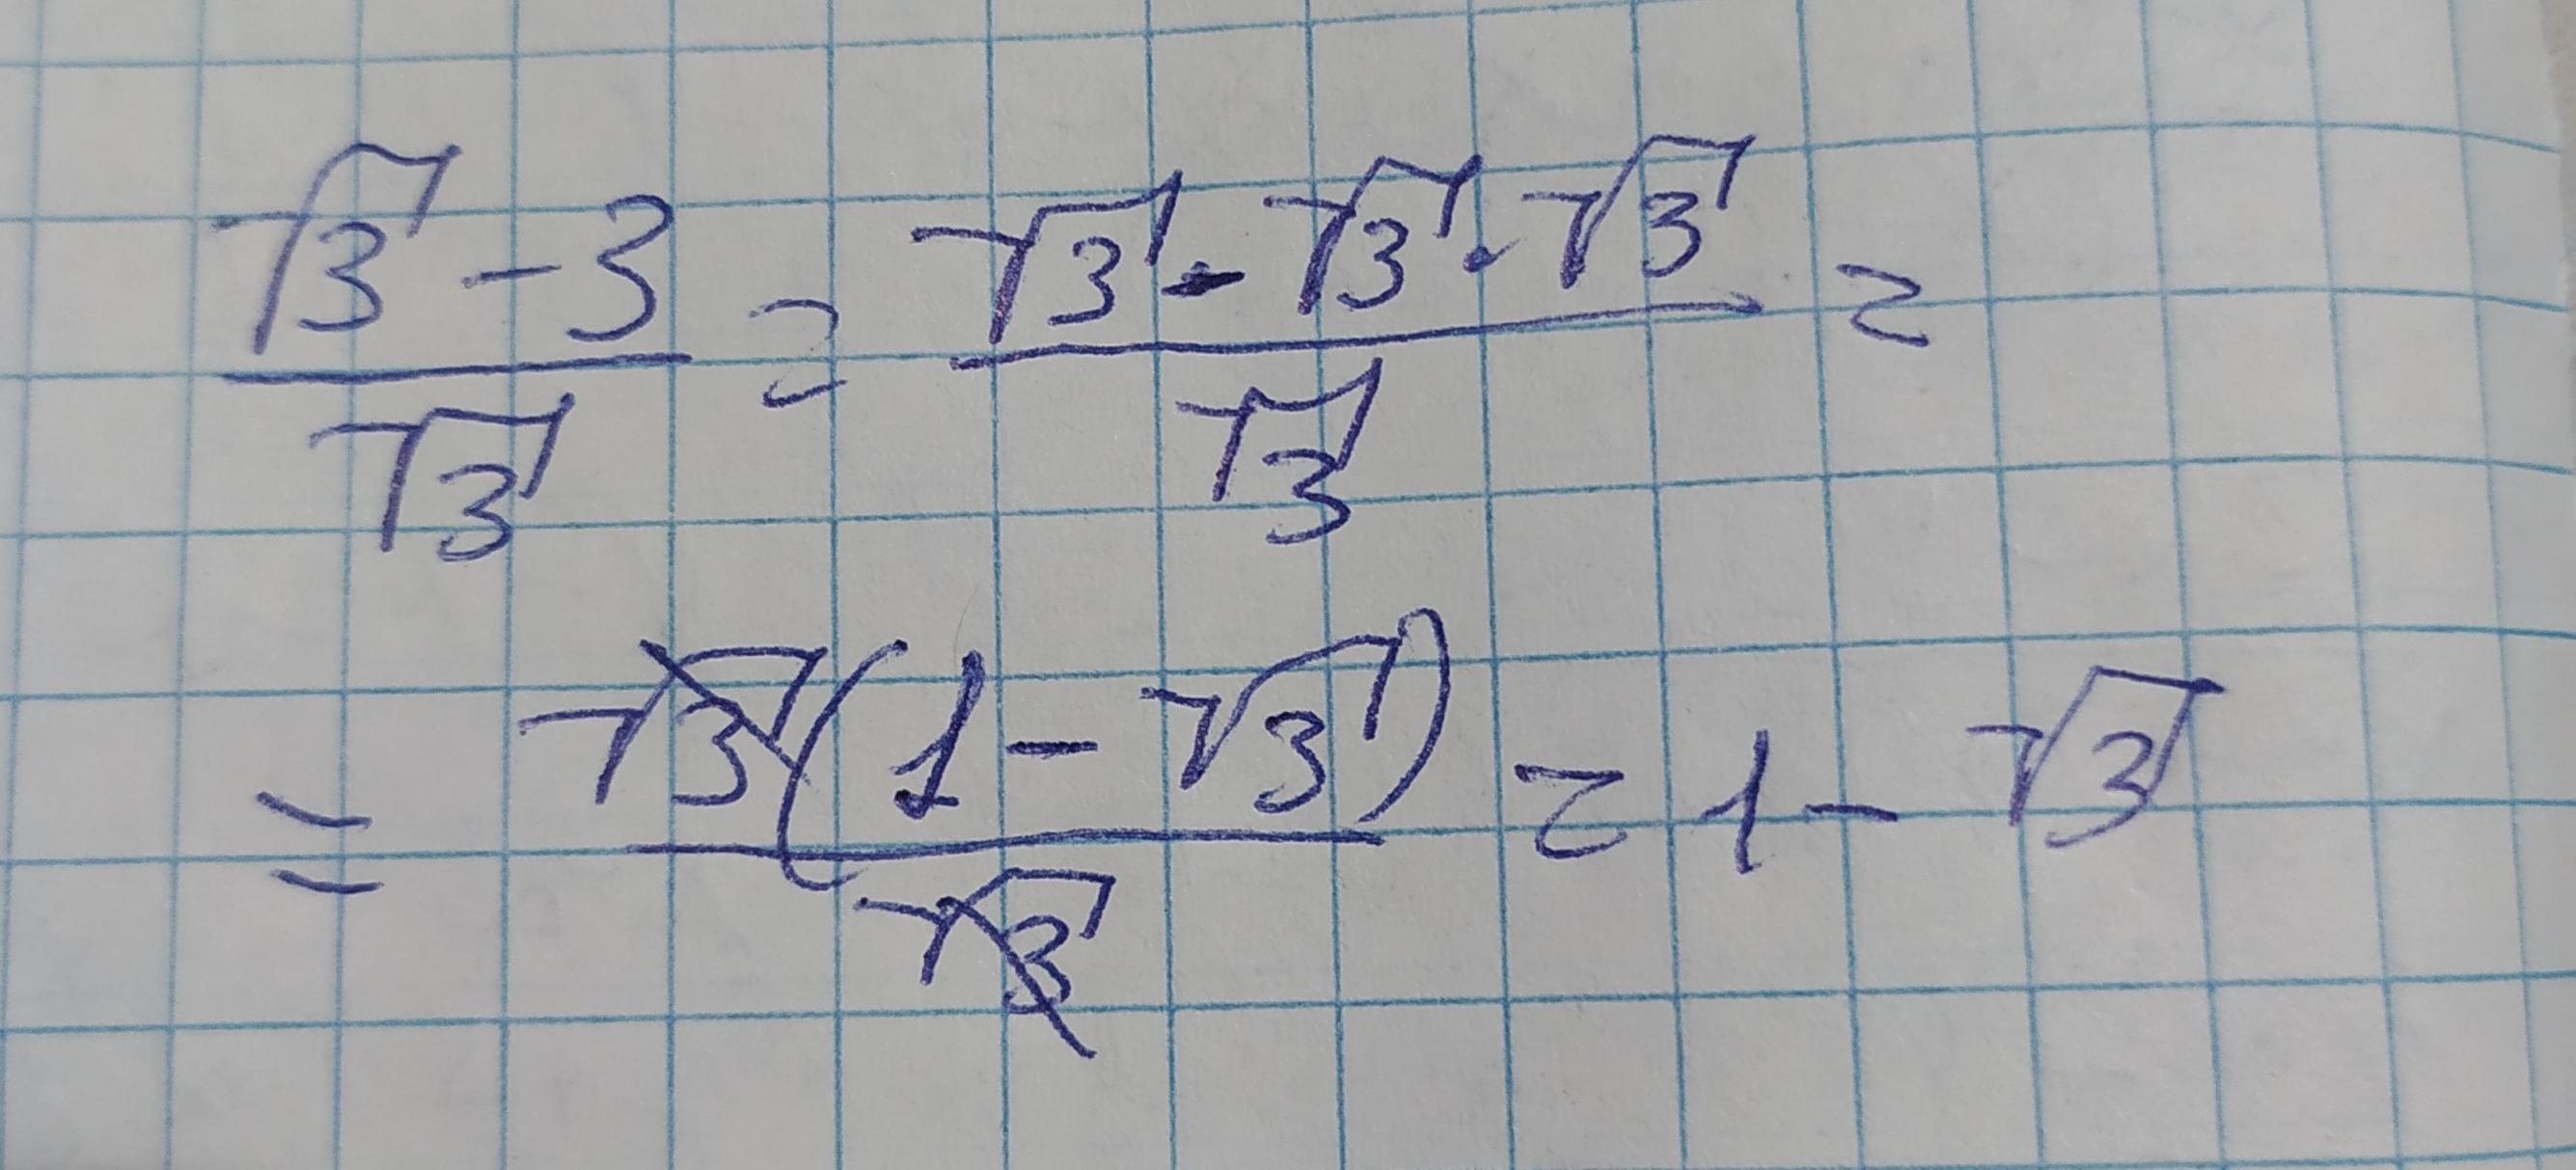 (√3 - 3)/√3 = (√3 - √3 · √3)/√3 =
= √3(1 - √3)/√3 = 1 - √3